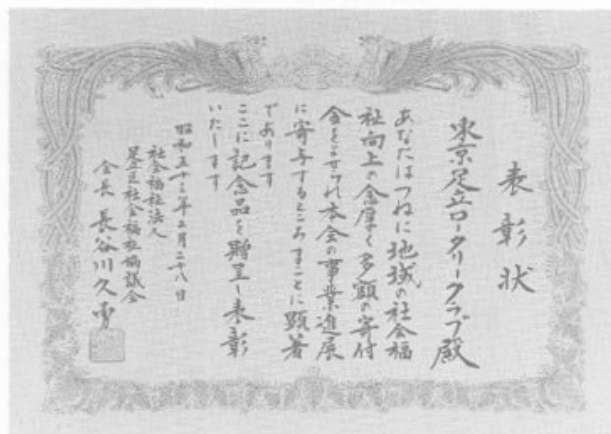 表彰状
東京足立ロータリークラブ殿
あなたはつねに地域の社会福
祉向上の念厚く多額の寄付
金をよせられ本会の事業進展
に寄与するところまことに顕著
であります
ここに記念品を贈呈し表彰
いたします
昭和五十三年五月二十八日
社会福祉法人
足立区社会福祉協議会
会長 長谷川久勇